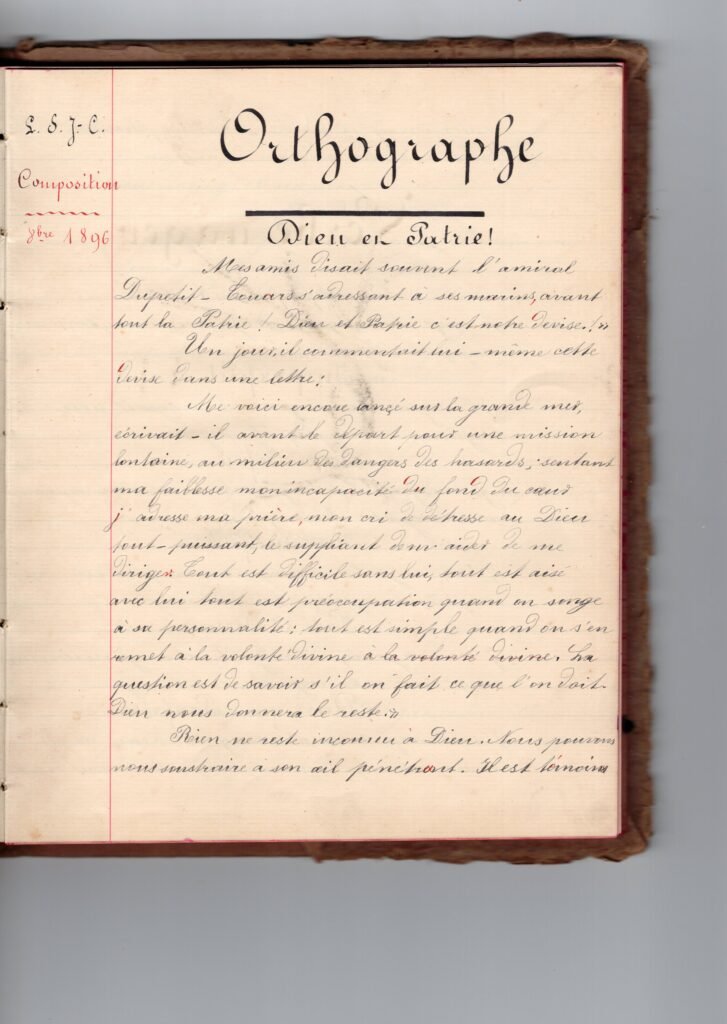 L. S. J-C.
Composition
8bre 1896
Orthographe
Dieu et Patrie!
Mes amis disait souvent l'amiral
Dupetit-Touars s'adressant à ses marins, avant
tout la Patrie! Dieu et Patrie c'est notre devise.!»
Un jour, il commentait lui-même cette
devise dans une lettre:
Me voici encore lançé sur la grande mer,
écrivait-il avant le départ pour une mission
lontaine, au milieu des dangers des hasards,; sentant
ma faiblesse mon incapacité du fond du cœur
j'adresse ma prière, mon cri de détresse au Dieu
tout-puissant, le suppliant de m'aider de me
diriger. Tout est difficile sans lui, tout est aisé
avec lui tout est préoccupation quand on songe
à sa personnalité; tout est simple quand on s'en
remet à la volonté divine à la volonté divine. La
question est de savoir s'il on fait ce que l'on doit.
Dieu nous donnera le reste.»
Rien ne reste inconnu à Dieu. Nous pouvons
nous soustraire à son œil pénétrant. Il est témoins